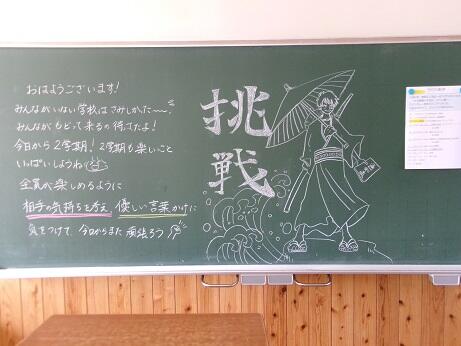 おはようございます!
みんながいない学校はさみしかった〜。
みんながもどって来るの待ってたよ!
今日から2学期!2学期も楽しいこと
いっぱいしようね
全員が楽しめるように
相手の気持ちを考え 優しい言葉かけに
気をつけて、今日からまた頑張ろう
挑
戦